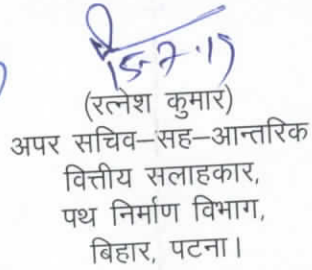 15-7-17
(रत्नेश कुमार)
अपर सचिव–सह–आन्तरिक
वित्तीय सलाहकार,
पथ निर्माण विभाग,
बिहार, पटना।